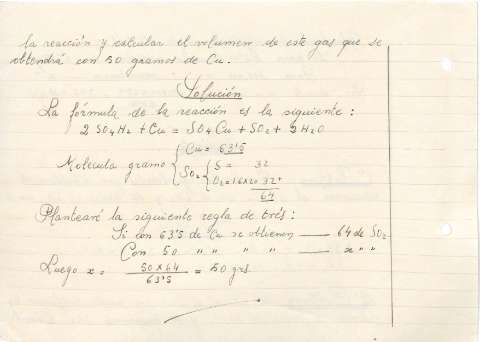 la reacción y calcular el volumen de este gas que se
obtendrá con 50 gramos de Cu.
Solución
La fórmula de la reacción es la siguiente:
2 SO4H2 + Cu = SO4Cu + SO2 + 2H2O
Molecula gramo { Cu = 63'5
SO2 { S = 32
O2 = 16x2= 32+
64
Plantearé la siguiente regla de trés:
Si con 63'5 de Cu se obtienen —— 64 de SO2
Con 50 " " " " —— x " "
Luego x = 50 x 64 / 63'5 = 50 grs